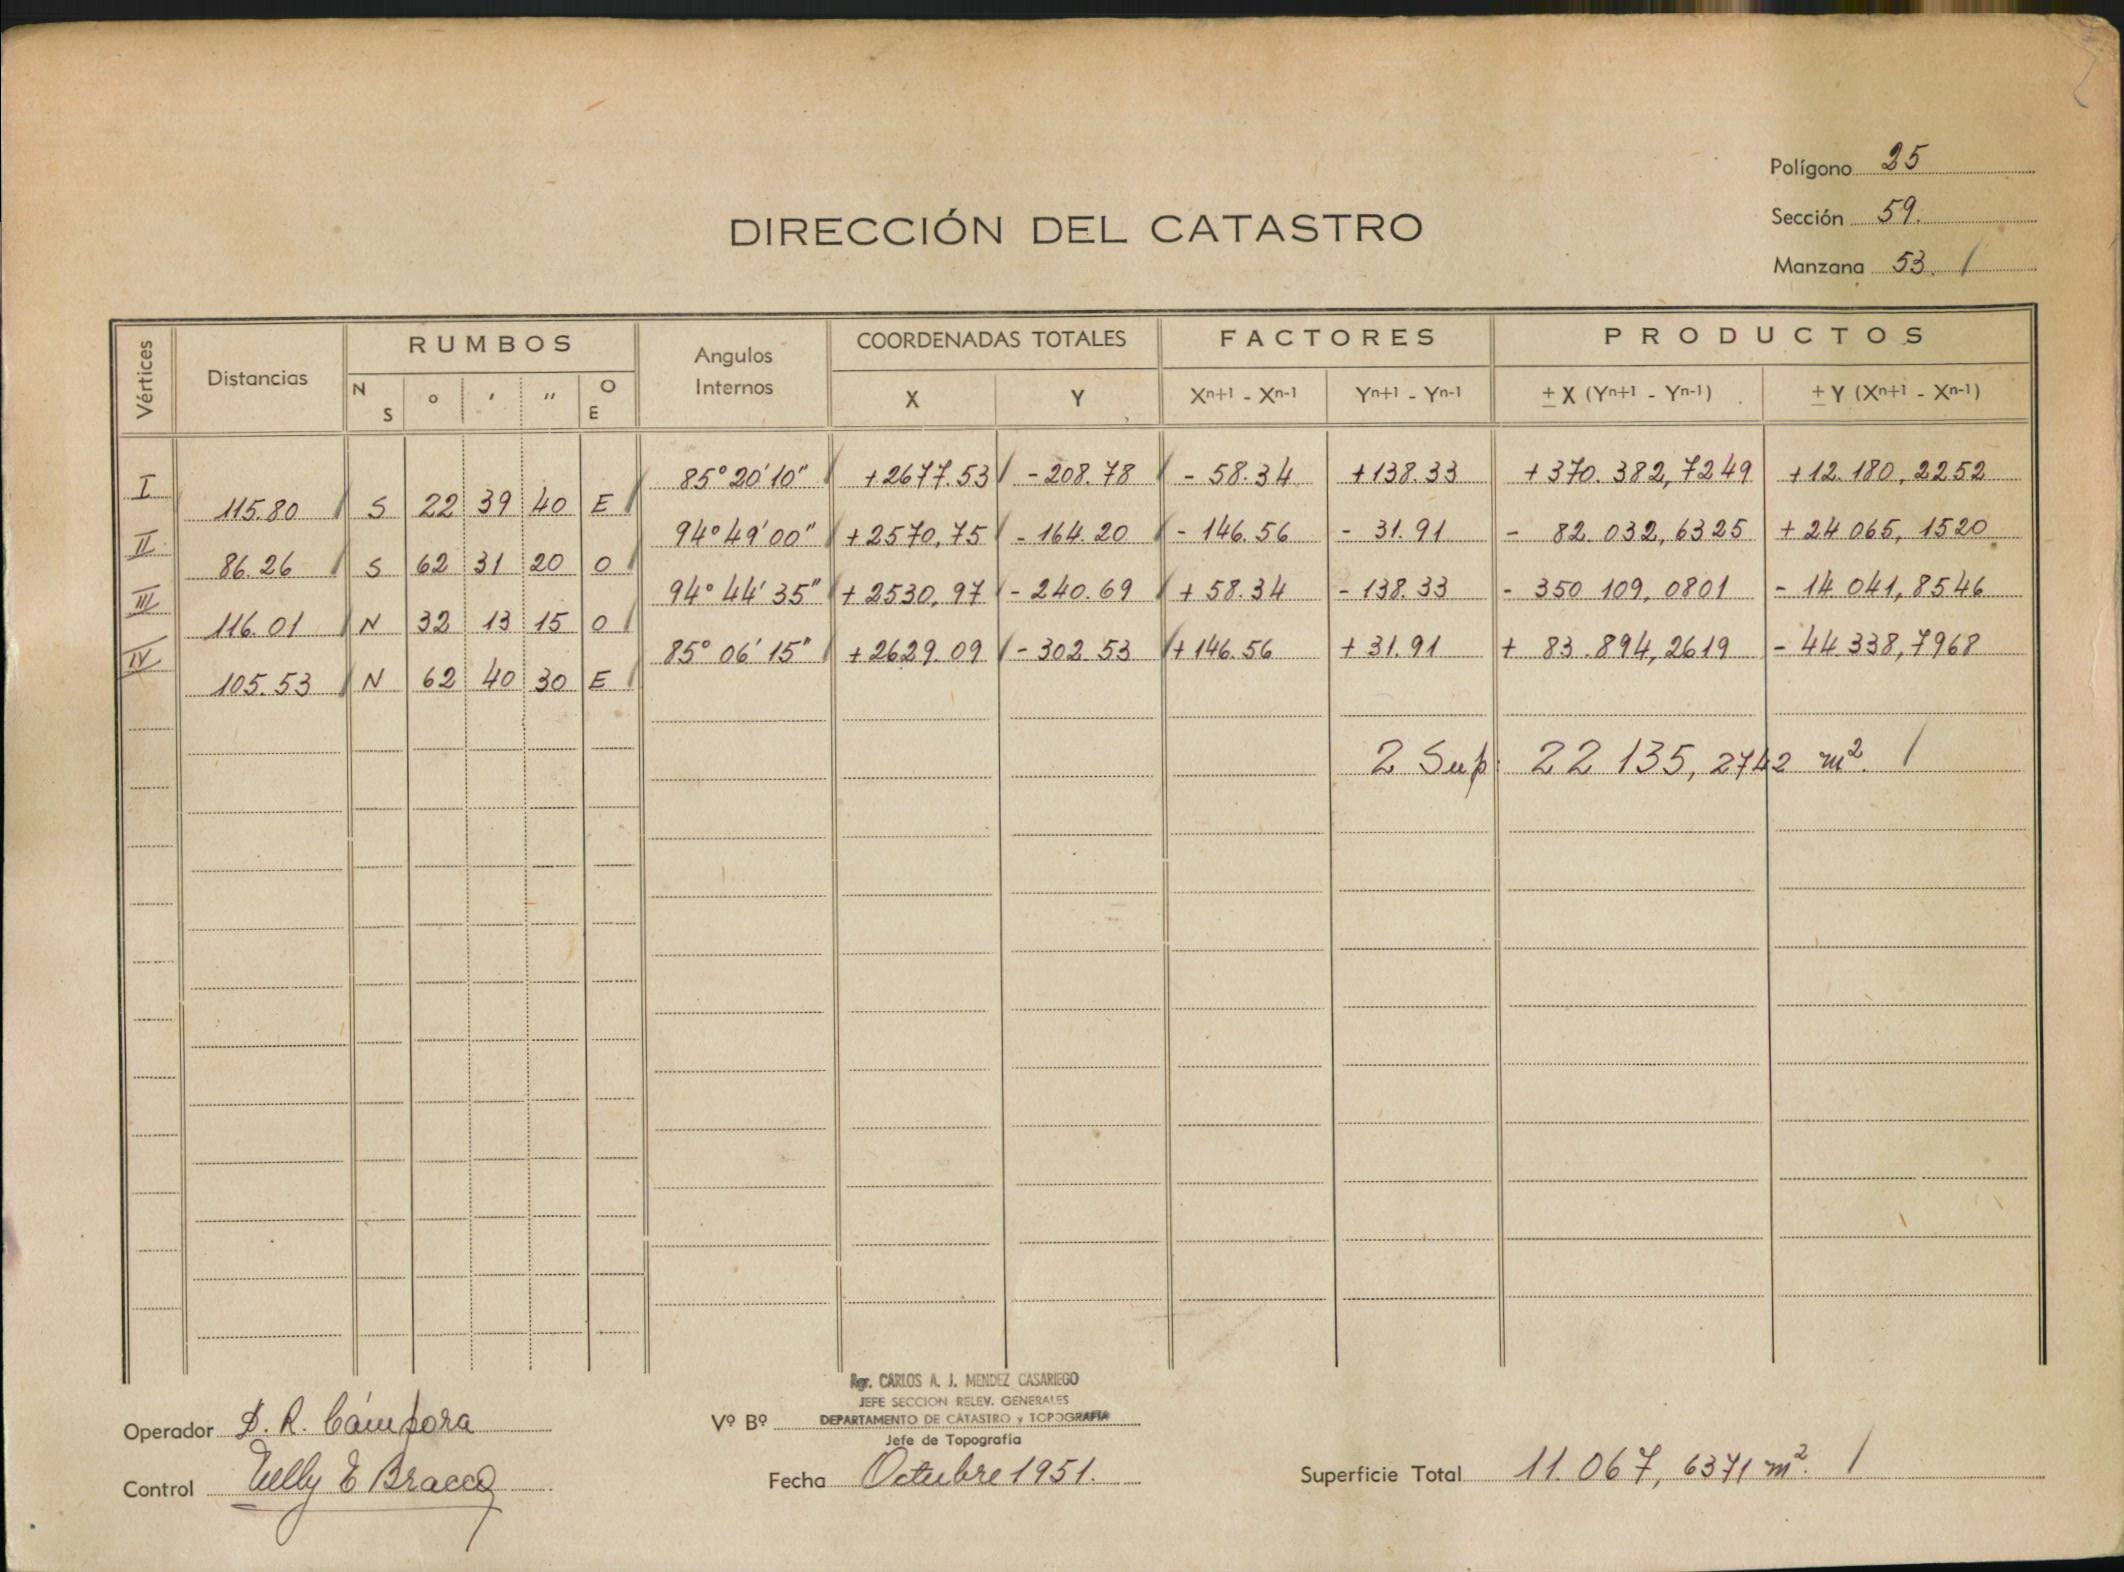 Polígono 25
Sección 59.
Manzana 53. /
DIRECCIÓN DEL CATASTRO
Vértices Distancias RUMBOS Angulos Internos COORDENADAS TOTALES FACTORES PRODUCTOS
N S ° ' " O E X Y Xn+1 - Xn-1 Yn+1 - Yn-1 ± X (Yn+1 - Yn-1) ± Y (Xn+1 - Xn-1)
I 85° 20' 10" +2677.53 -208.78 - 58.34 +138.33 +370.382,7249 +12.180,2252
115.80 S 22 39 40 E
II 94° 49' 00" +2570,75 -164.20 - 146.56 - 31.91 - 82.032,6325 +24 065,1520
86.26 S 62 31 20 O
III 94° 44' 35" +2530,97 -240.69 +58.34 -138.33 - 350 109,0801 - 14 041,8546
116.01 N 32 13 15 O
IV 85° 06' 15" +2629.09 -302.53 +146.56 +31.91 + 83.894,2619 - 44.338,7968
105.53 N 62 40 30 E
2 Sup: 22 135,2742 m². /
Agr. CARLOS A. J. MENDEZ CASARIEGO
JEFE SECCION RELEV. GENERALES
Operador D. R. Cámpora Vº Bº DEPARTAMENTO DE CATASTRO y TOPOGRAFIA
Jefe de Topografía
Control Nelly E Bracco Fecha Octubre 1951. Superficie Total 11.067,6371 m². /